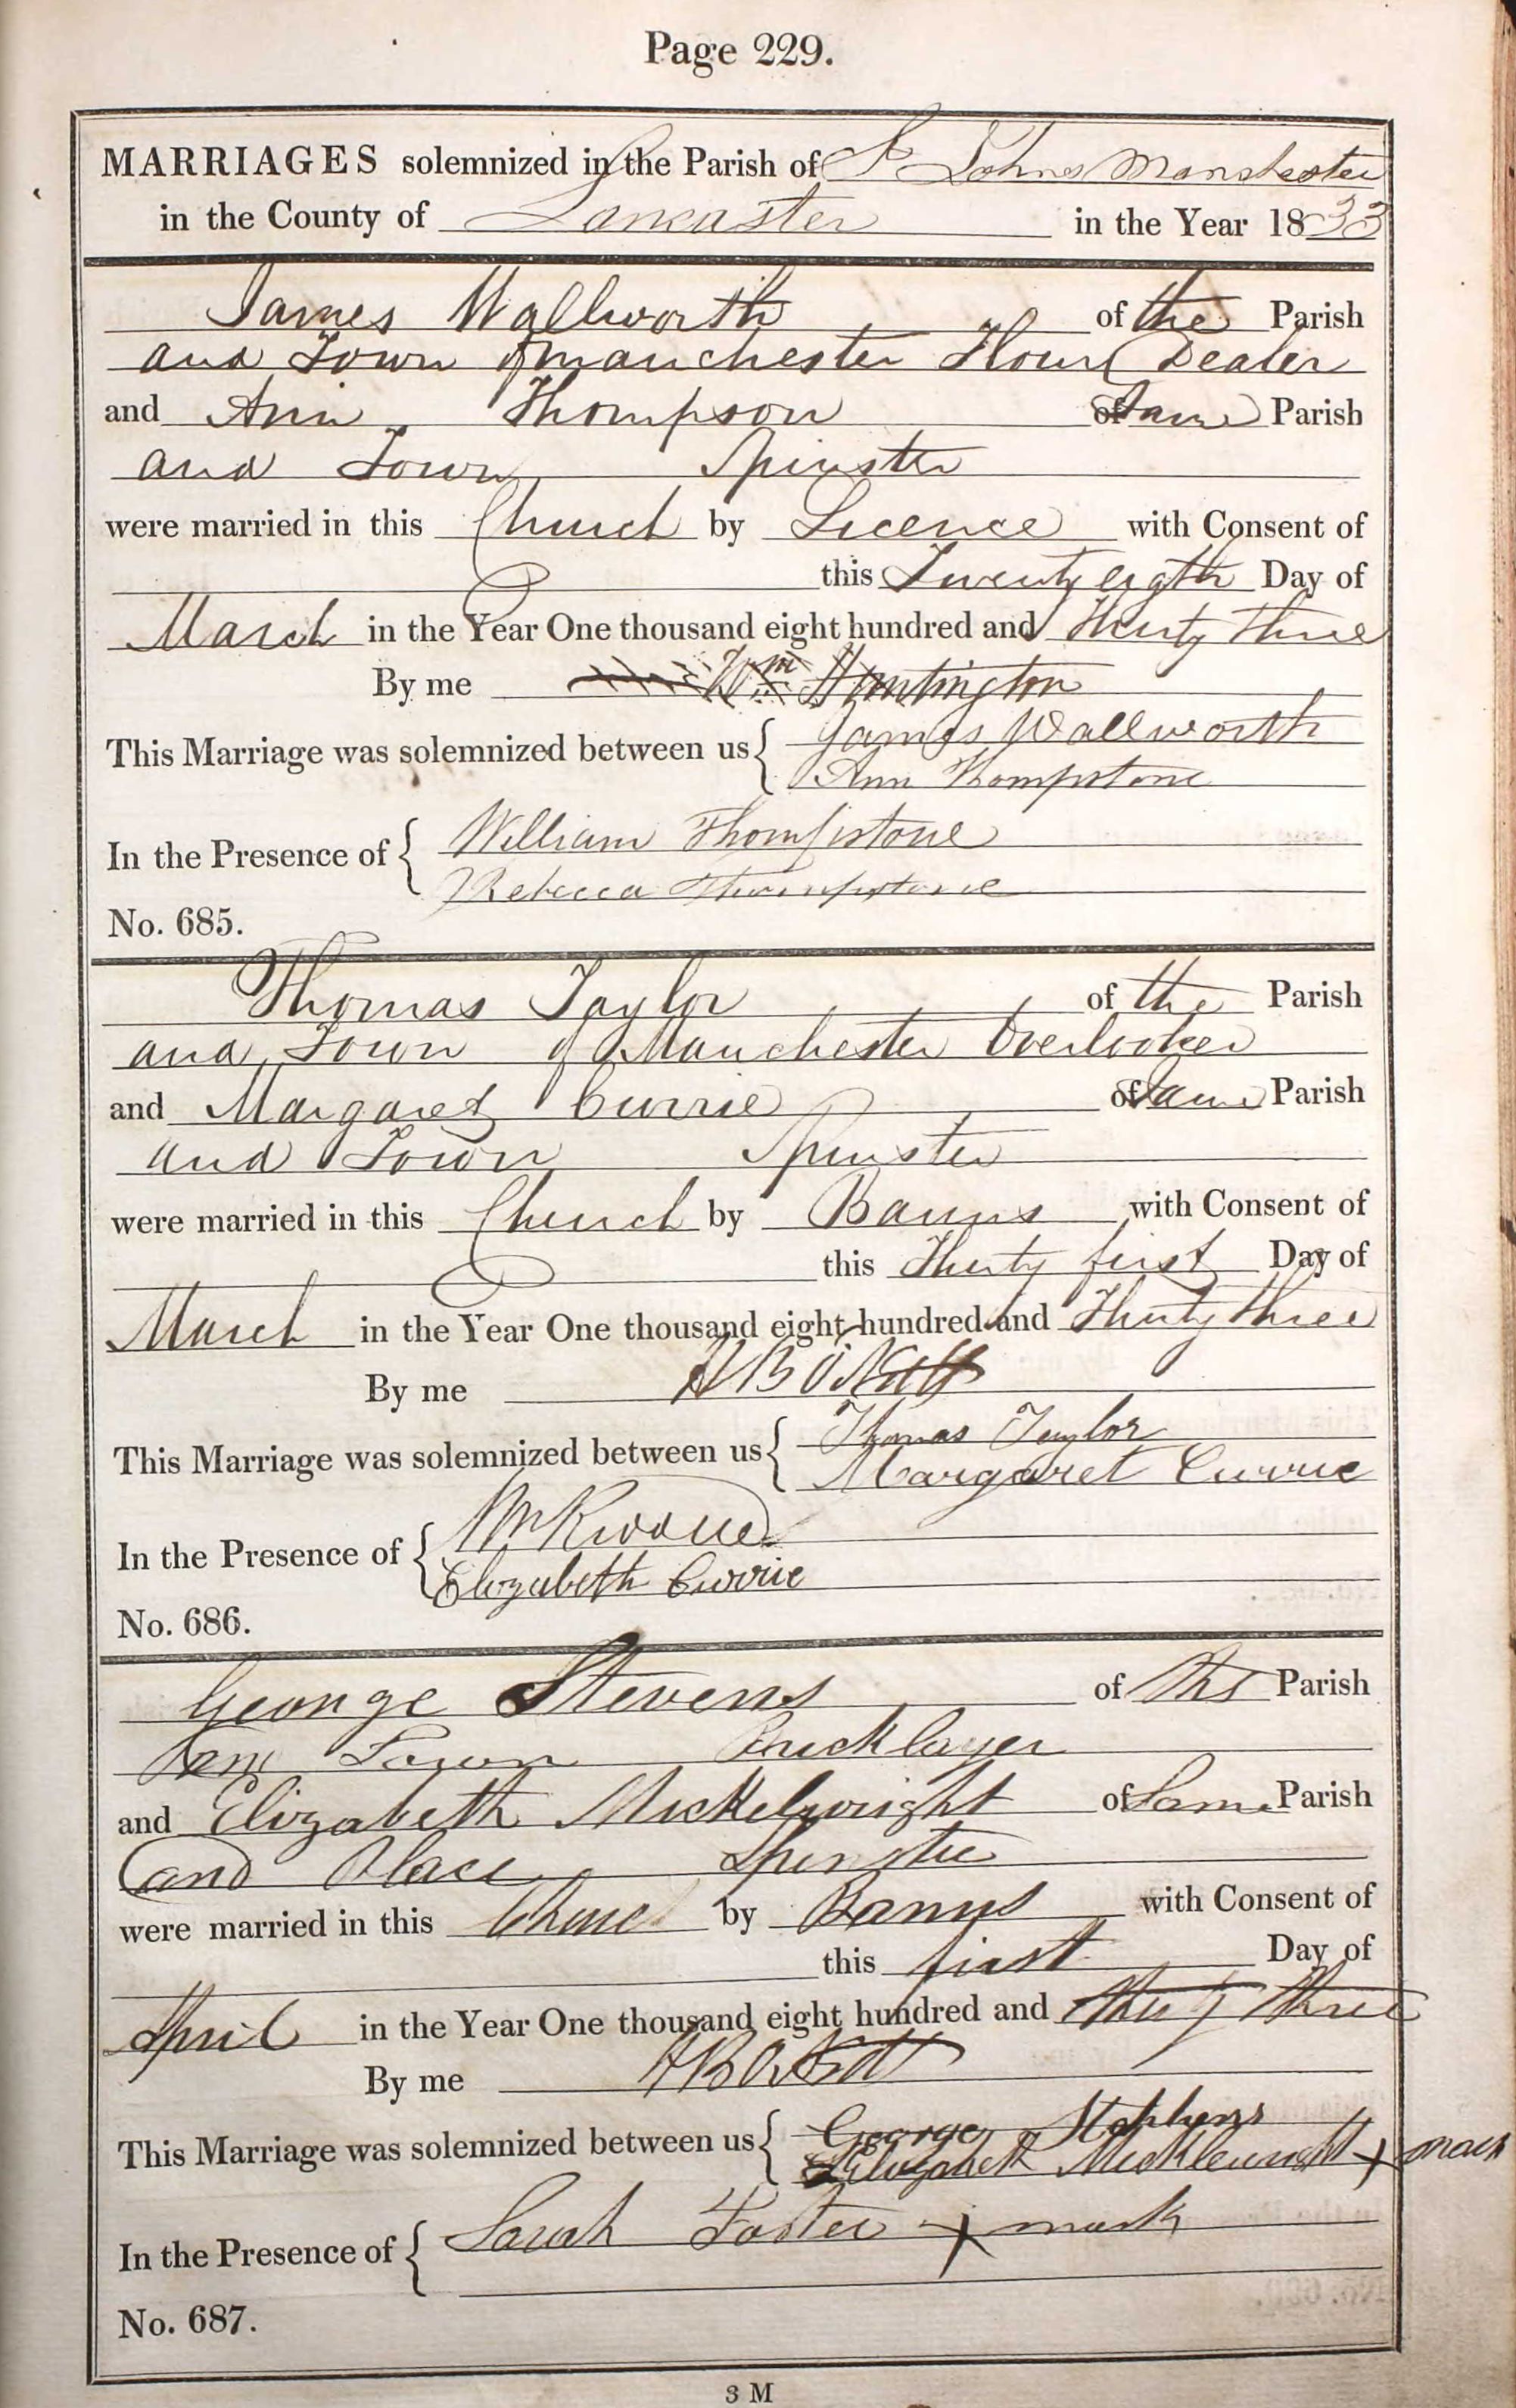 Page 229.
MARRIAGES solemnized in the Parish of St Johns Manchester
in the County of Lancaster in the Year 1833
James Wallworth of the Parish
and Town of Manchester Flour Dealer
and Ann Thompson of Same Parish
and Town Spinster
were married in this Church by Licence with Consent of
this Twenty eigth Day of
March in the Year One thousand eight hundred and Thirty Three
By me Wm Huntington
This Marriage was solemnized between us { James Wallworth
Ann Thompstone
In the Presence of { William Thompstone
Rebecca Thompstone
No. 685.
Thomas Taylor of the Parish
and Town of Manchester Overlooker
and Margaret Currie of Same Parish
and Town Spinster
were married in this Church by Banns with Consent of
this Thirty first Day of
March in the Year One thousand eight hundred and Thirty three
By me
This Marriage was solemnized between us { Thomas Taylor
Margaret Currie
In the Presence of {
Elizabeth Currie
No. 686.
George Stevens of this Parish
Town Bricklayer
and Elizabeth Mickelwright of Same Parish
and Place Spinster
were married in this Church by Banns with Consent of
this first Day of
April in the Year One thousand eight hundred and thirty three
By me
This Marriage was solemnized between us { George Stephens
Elizabeth Micklewright x mark
In the Presence of { Sarah Foster x mark
No. 687.
3 M